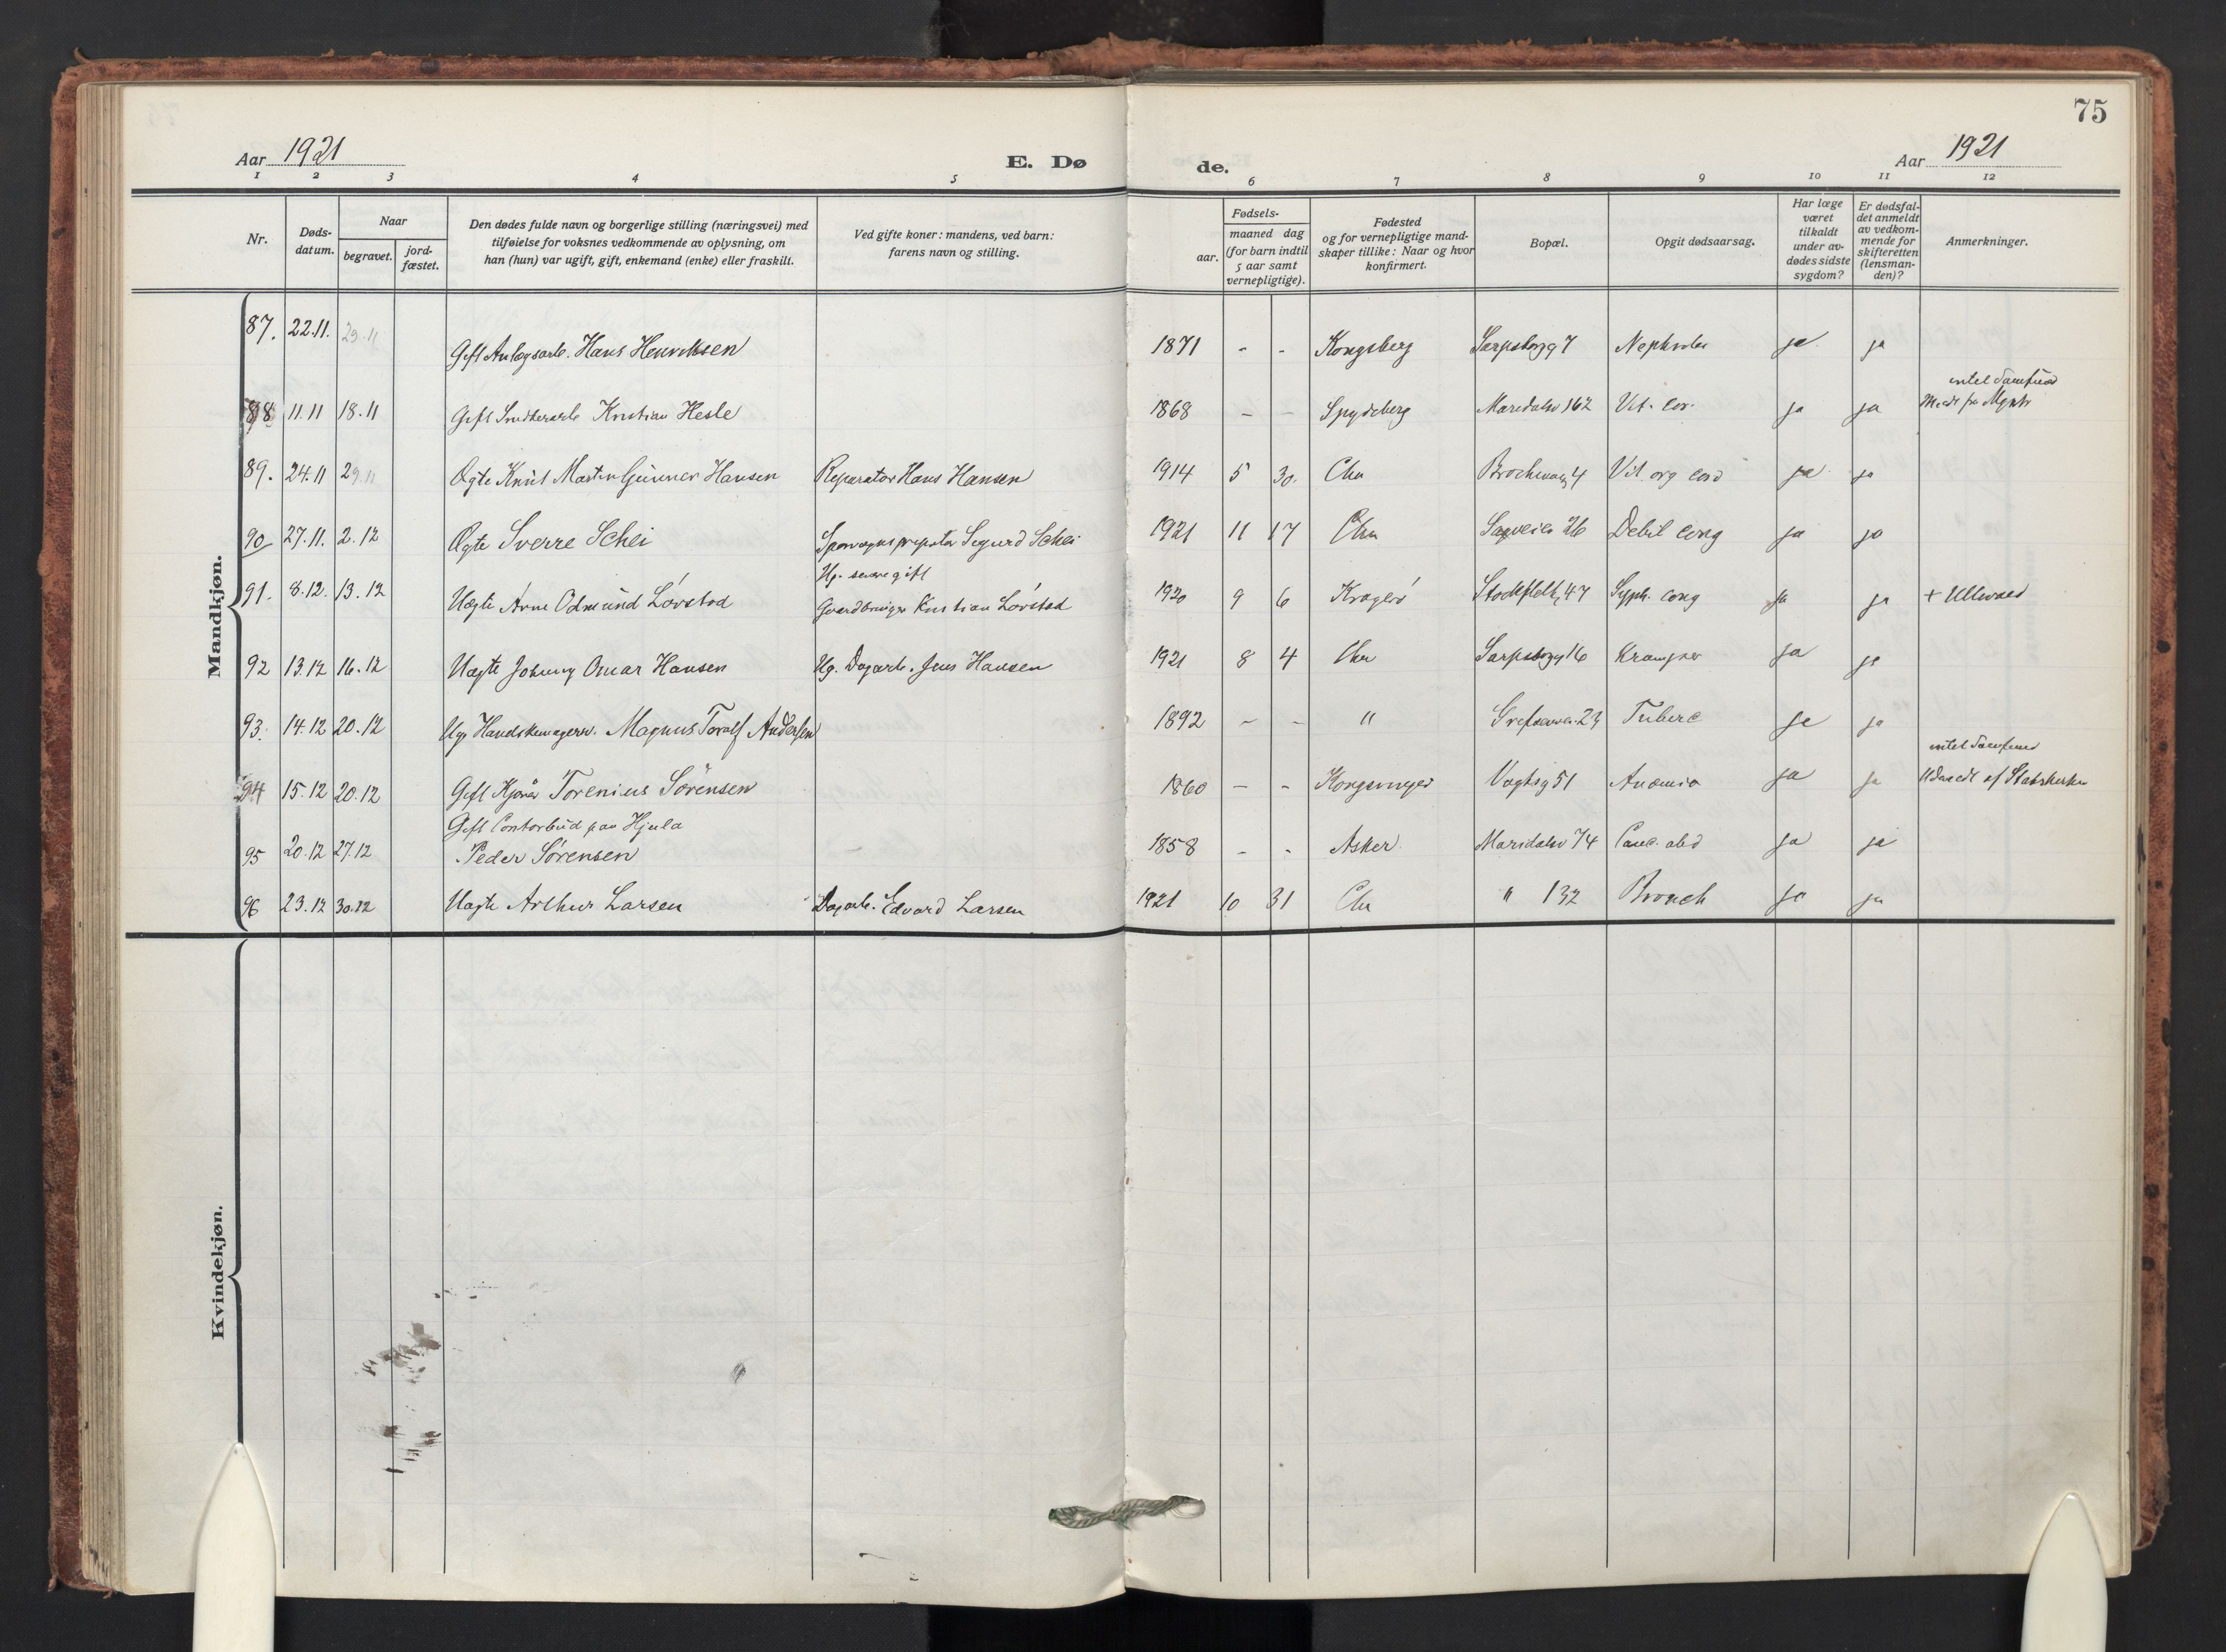 75
Aar 1921
E. Dø
de.
Aar 1921
1 2 3 4 5 6 7 8 9 10 11 12
Nr.
Døds-
datum.
Naar
begravet.
jord-
fæstet.
Den dødes fulde navn og borgerlige stilling (næringsvei) med
tilføielse for voksnes vedkommende av oplysning, om
han (hun) var ugift, gift, enkemand (enke) eller fraskilt.
Ved gifte koner: mandens, ved barn:
farens navn og stilling.
Fødsels-
aar.
maaned dag
(for barn indtil
5 aar samt
vernepligtige).
Fødested
og for vernepligtige mand-
skaper tillike: Naar og hvor
konfirmert.
Bopæl.
Opgit dødsaarsag.
Har læge
været
tilkaldt
under av-
dødes sidste
sygdom?
Er dødsfal-
det anmeldt
av vedkom-
mende for
skifteretten
(lensman-
den)?
Anmerkninger.
Mandkjøn.
87. 22.11. 29.11 Gift Anlægsarb. Hans Henriksen 1871 - - Kongsberg Sarpsborgg 7 ja ja
intet Samfund
88 11.11 18.11 Gift Snidkerarb Kristian Hesle 1868 - - Spydeberg Maridalsv 162 Vit. cor. ja ja
89. 24.11 29.11 Ægte Knut Martin Gunner Hansen Reparatør Hans Hansen 1914 5 30. Chra 4 Vit. org cord ja ja
90 27.11. 2.12 Ægte Sverre Schei Sigurd Schei 1921 11 17 Chra Sagveien 26 Debil cong ja ja
Ug. senere gift
91. 8.12. 13.12 Uægte Arne Odmund Lövstad Kristian Lövstad 1920 9 6 Kragerö Stockfletg 47 Syph. cong ja ja + Ullevaal
92 13.12 16.12 Uægte Johnny Omar Hansen Ug. Dagarb. Jens Hansen 1921 8 4 Chra Sarpsborgg 16 Kramper ja ja
93. 14.12 20.12 Ug. Magnus Toralf Andersen 1892 - - " Grefsenvei. 23 Tuberc ja ja
intet Samfund
94 15.12 20.12 Gift Kjörer Torenius Sörensen 1860 - - Kongsvinger Vogtsg 51 Anæmia ja ja Udmeldt af Statskirken
Gift Contorbud paa Hjula
95 20.12 27.12 Peder Sörensen 1858 - - Asker. Maridalsv 74 Canc. abd ja ja
96 23.12 30.12 Uægte Arthur Larsen Dagarb. Edvard Larsen 1921 10 31 Chr " 132 Bronch ja ja
Kvindekjøn.